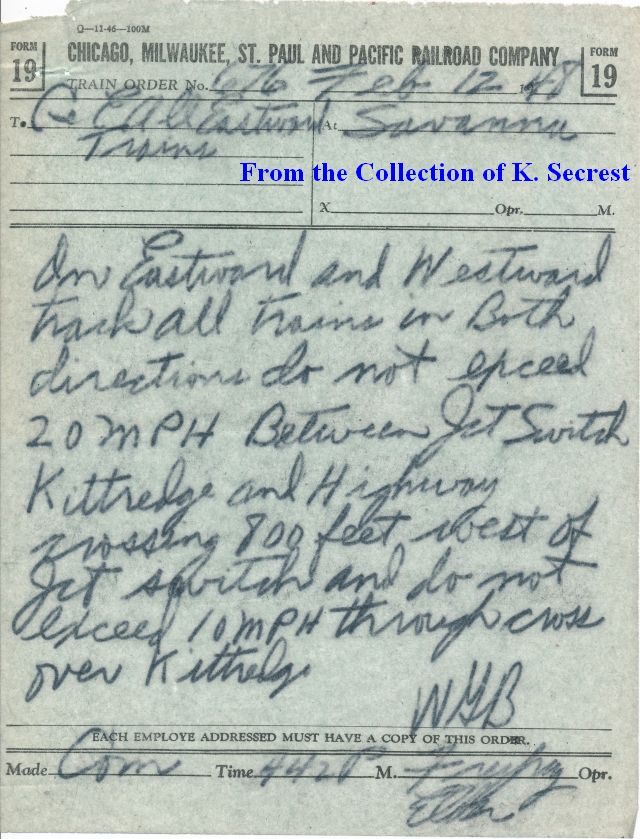 Q—11-46—100M
FORM 19
CHICAGO, MILWAUKEE, ST. PAUL AND PACIFIC RAILROAD COMPANY
FORM 19
TRAIN ORDER No. 676 Feb 12 1948
To C&E All Eastward
Trains
At Savanna
From the Collection of K. Secrest
X Opr. M.
On Eastward and Westward
track all trains in Both
directions do not exceed
20 MPH Between Jct Switch
Kittredge and Highway
crossing 800 feet west of
Jct switch and do not
exceed 10 MPH through cross
over Kittredge
WGB
EACH EMPLOYE ADDRESSED MUST HAVE A COPY OF THIS ORDER.
Made Com Time 442 P M. Opr.